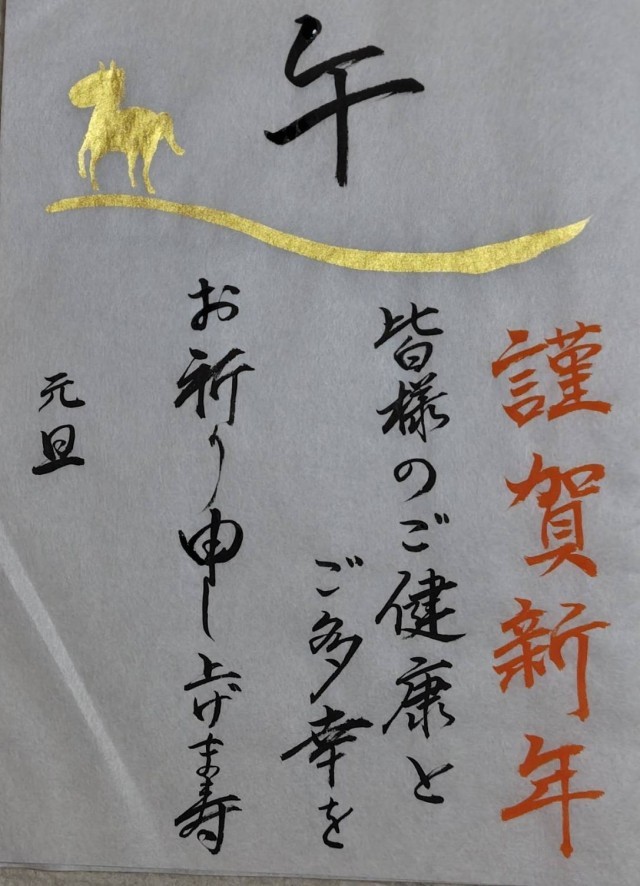 午
謹賀新年
皆様のご健康と
ご多幸を
お祈り申し上げま寿
元旦